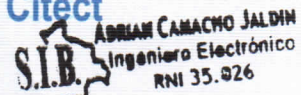 Citect
ADRIAN CAMACHO JALDIN
Ingeniero Electrónico
S.I.B.
RNI 35.026